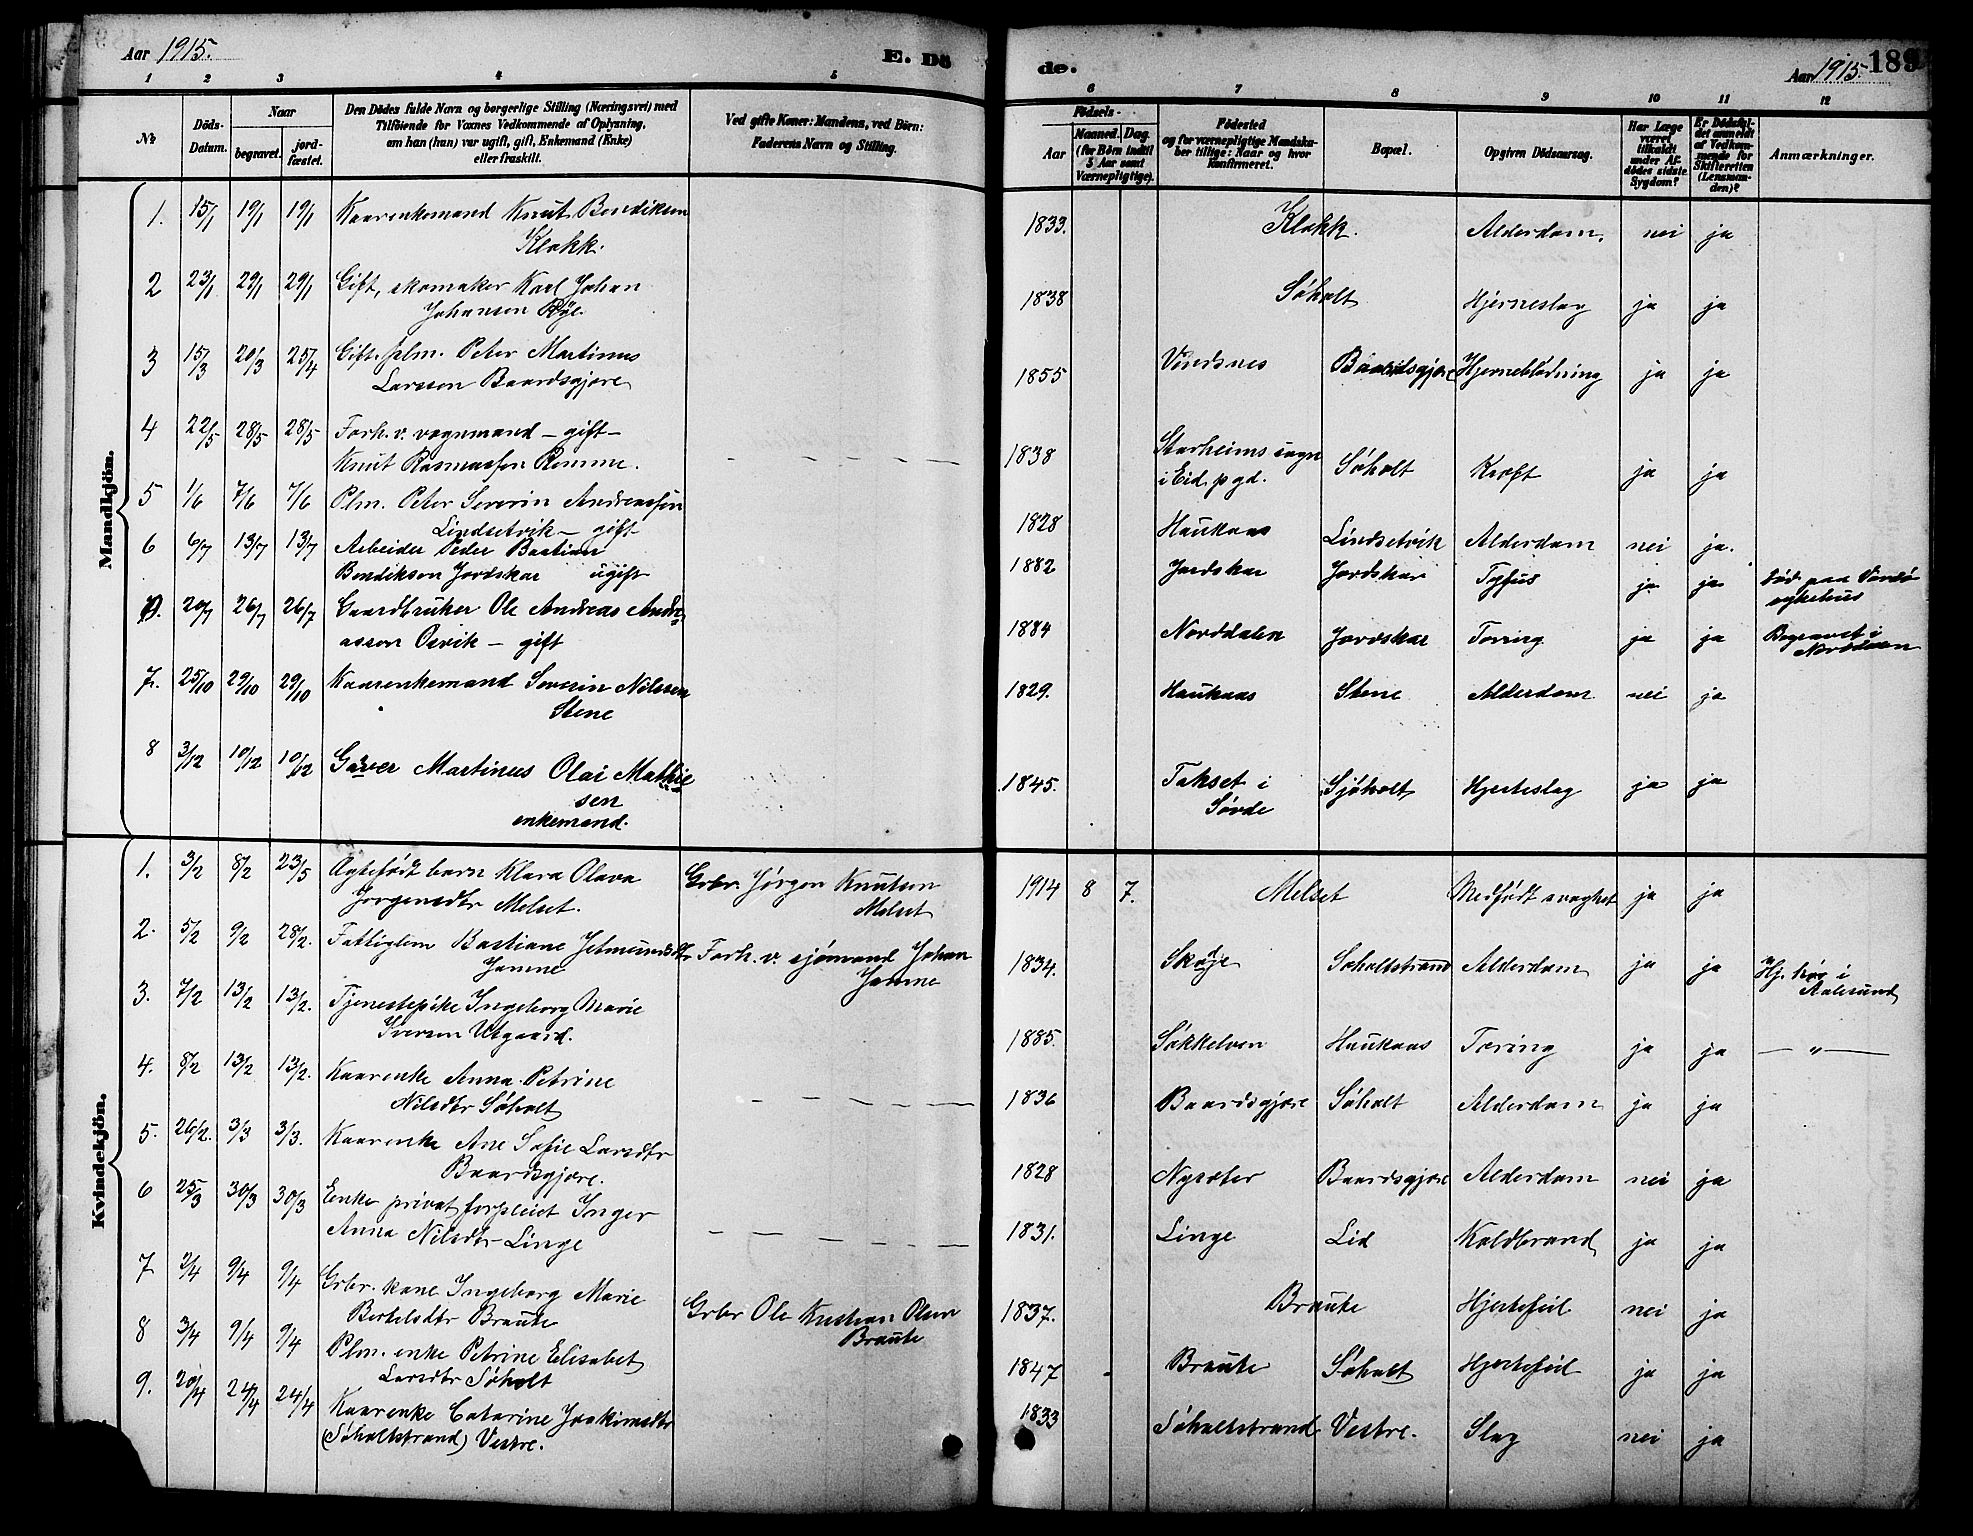 Aar 1915.
E. Dö
de.
Aar 1915.
189
1 2 3 4 5
6 7 8 9 10 11 12
№
Döds-
Datum.
Naar
begravet.
jord-
fæstet.
Den Dödes fulde Navn og borgerlige Stilling (Næringsvei) med
Tilföiende for Voxnes Vedkommende af Oplysning,
om han (hun) var ugift, gift, Enkemand (Enke)
eller fraskilt.
Ved gifte Koner: Mandens, ved Börn:
Faderens Navn og Stilling.
Födsels-
Aar
Maaned. Dag.
(for Börn indtil
5 Aar samt
Værnepligtige).
Födested
og for værnepligtige Mandska-
ber tillige: Naar og hvor
konfirmeret.
Bopæl.
Opgiven Dödsaarsag.
Har Læge
været
tilkaldt
under Af-
dödes sidste
Sygdom?
Er Dödsfal-
det anmeldt
af Vedkom-
mende for
Skifteretten
(Lensman-
den)?
Anmærkninger.
Mandkjön.
1. 15/1 19/1 19/1 Kaarenkemand Knut Bendiksen
Klokk.
1833. Klokk. Alderdom. nei ja
2 23/1 29/1 29/1 Gift, skomaker Karl Johan
Johansen Røje.
1838 Søholt Hjerneslag ja ja
3 15/3 20/3 25/4 Gift. plm. Peter Martinus
Larssen Baardsgjære
1855 Vindsnes Baardsgjære Hjerneblødning ja ja
4 22/5 28/5 28/5 Forh. v. vognmand – gift –
Knut Rasmussen Romme.
1838 Starheims sogn
i Eid pgd. Søholt Kræft ja ja
5 1/6 7/6 7/6 Plm. Peter Severin Andreassen
Lindsetvik – gift
1828 Haukaas Lindsetvik Alderdom nei ja.
6 6/7 13/7 13/7 Arbeider Peder Bastian
Bendiksen Jordskar ugift
1882 Jordskar Jordskar Tyfus ja ja Død paa Vardø
sykehus
20/7 26/7 26/7 Gaardbruker Ole Andreas Andre-
assen Osvik – gift
1884 Norddalen Jordskar Tæring ja ja Begravet i
Norddalen
7. 25/10 29/10 29/10 Kaarenkemand Severin Nilssen
Stene
1829. Haukaas Stene Alderdom nei ja
8 3/12 10/12 10/12 Garver Martinus Olai Mathie
sen
enkemand.
1845. Takset i
Søvde Sjøholt Hjerteslag ja ja
Kvindekjön.
1. 3/2 8/2 23/5 Ægtefødt barn Klara Olava
Jørgensdtr Melset.
Grbr. Jørgen Knutsen
Melset
1914 8 7. Melset Medfødt svaghet ja ja
2. 5/2 9/2 28/2. Fattiglem Bastiane Jetmundsdtr
Jamne
Forh. v. sjømand Johan
Jamne
1834. Skodje Søholtstrand Alderdom ja ja Hj. hør i
Aalesund
3. 7/2 13/2 13/2. Tjenestepike Ingeborg Marie
Iversen Utgaard.
1885. Søkkelven Haukaas Tæring ja ja — " —
4. 8/2 13/2 13/2. Kaarenke Anna Petrine
Nilsdtr Søholt
1836 Baardsgjære Søholt Alderdom ja ja
5. 26/2. 3/3 3/3. Kaarenke Ane Sofie Larsdtr
Baardsgjære.
1828 Nysæter Baardsgjære Alderdom nei ja
6 25/3 30/3 30/3 Enke privat forpleiet Inger
Anna Nilsdtr Linge
1831. Linge Lid Koldbrand ja ja
7 2/4 9/4 9/4 Grbr. kone Ingeborg Marie
Bertelsdtr Braute
Grbr Ole Kristian Olsen
Braute
1837. Braute Hjertefeil nei ja
8 3/4 9/4 9/4 Plm. enke Petrine Elisabet
Larsdtr Søholt
1847 Braute Søholt Hjertefeil ja ja
9. 20/4 24/4 24/4 Kaarenke Catarine Joakimsdtr
(Søholtstrand) Vestre.
1833 Søholtstrand Vestre. Slag nei ja